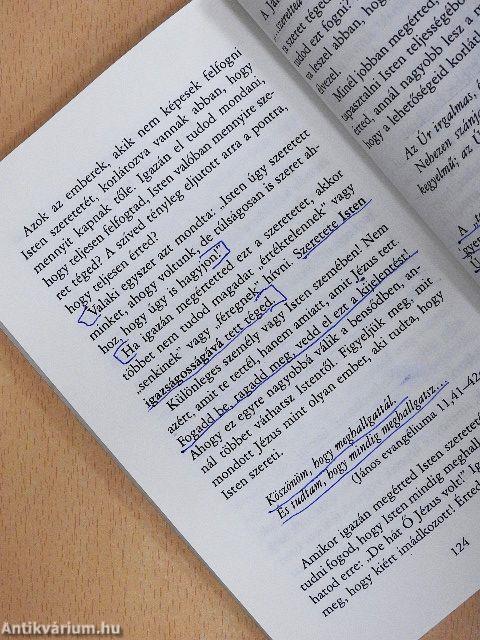 Azok az emberek, akik nem képesek felfogni
Isten szeretetét, korlátozva vannak abban, hogy
mennyit kapnak tőle. Igazán el tudod mondani,
hogy teljesen felfogtad, Isten valóban mennyire sze-
ret téged? A szíved tényleg eljutott arra a pontra,
hogy teljesen érted?
Valaki egyszer azt mondta: „Isten úgy szeretett
minket, ahogy voltunk, de túlságosan is szeret ah-
hoz, hogy úgy is hagyjon!”
Ha igazán megértetted ezt a szeretetet, akkor
többet nem tudod magadat „értéktelennek” vagy
„senkinek” vagy „féregnek” hívni. Szeretete Isten
igazságosságává tett téged.
Különleges személy vagy Isten szemében! Nem
azért, amit te tettél, hanem amiatt, amit Jézus tett.
Fogadd be, ragadd meg, vedd el ezt a kijelentést!
Ahogy ez egyre nagyobbá válik a bensődben, an-
nál többet várhatsz Istentől. Figyeljük meg, mit
mondott Jézus mint olyan ember, aki tudta, hogy
Isten szereti.
Köszönöm, hogy meghallgattál.
És tudtam, hogy mindig meghallgatsz...
(János evangéliuma 11,41-42
Amikor igazán megérted Isten szeretetét
tudni fogod, hogy Isten mindig meghall
hatod erre: „De hát Ő Jézus volt!” Ig
meg, hogy kiért imádkozott! Érted
124
A Ján
„szerettea
a szeret téged
tudod ezt fogni?
ra leszel abban, hog
élvezel
Minél jobban megérted
tapasztalni Isten teljességébő
érted, annál nagyobb lesz a
hogy a lehetőségeid korlátl
Az Úr irgalmas, é
Nehezen szánja
kegyelmű; az Ú
Antikvárium.hu